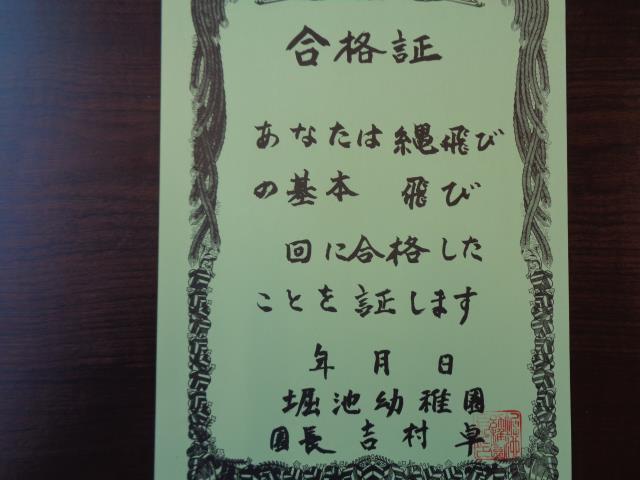 合格証
あなたは縄飛び
の基本 飛び
回に合格した
ことを証します
年 月 日
堀池幼稚園
園長 吉村 卓